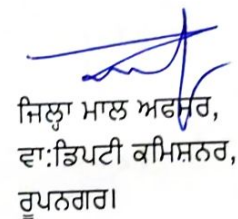 ਜਿਲ੍ਹਾ ਮਾਲ ਅਫਸਰ,
ਵਾ:ਡਿਪਟੀ ਕਮਿਸ਼ਨਰ,
ਰੂਪਨਗਰ।